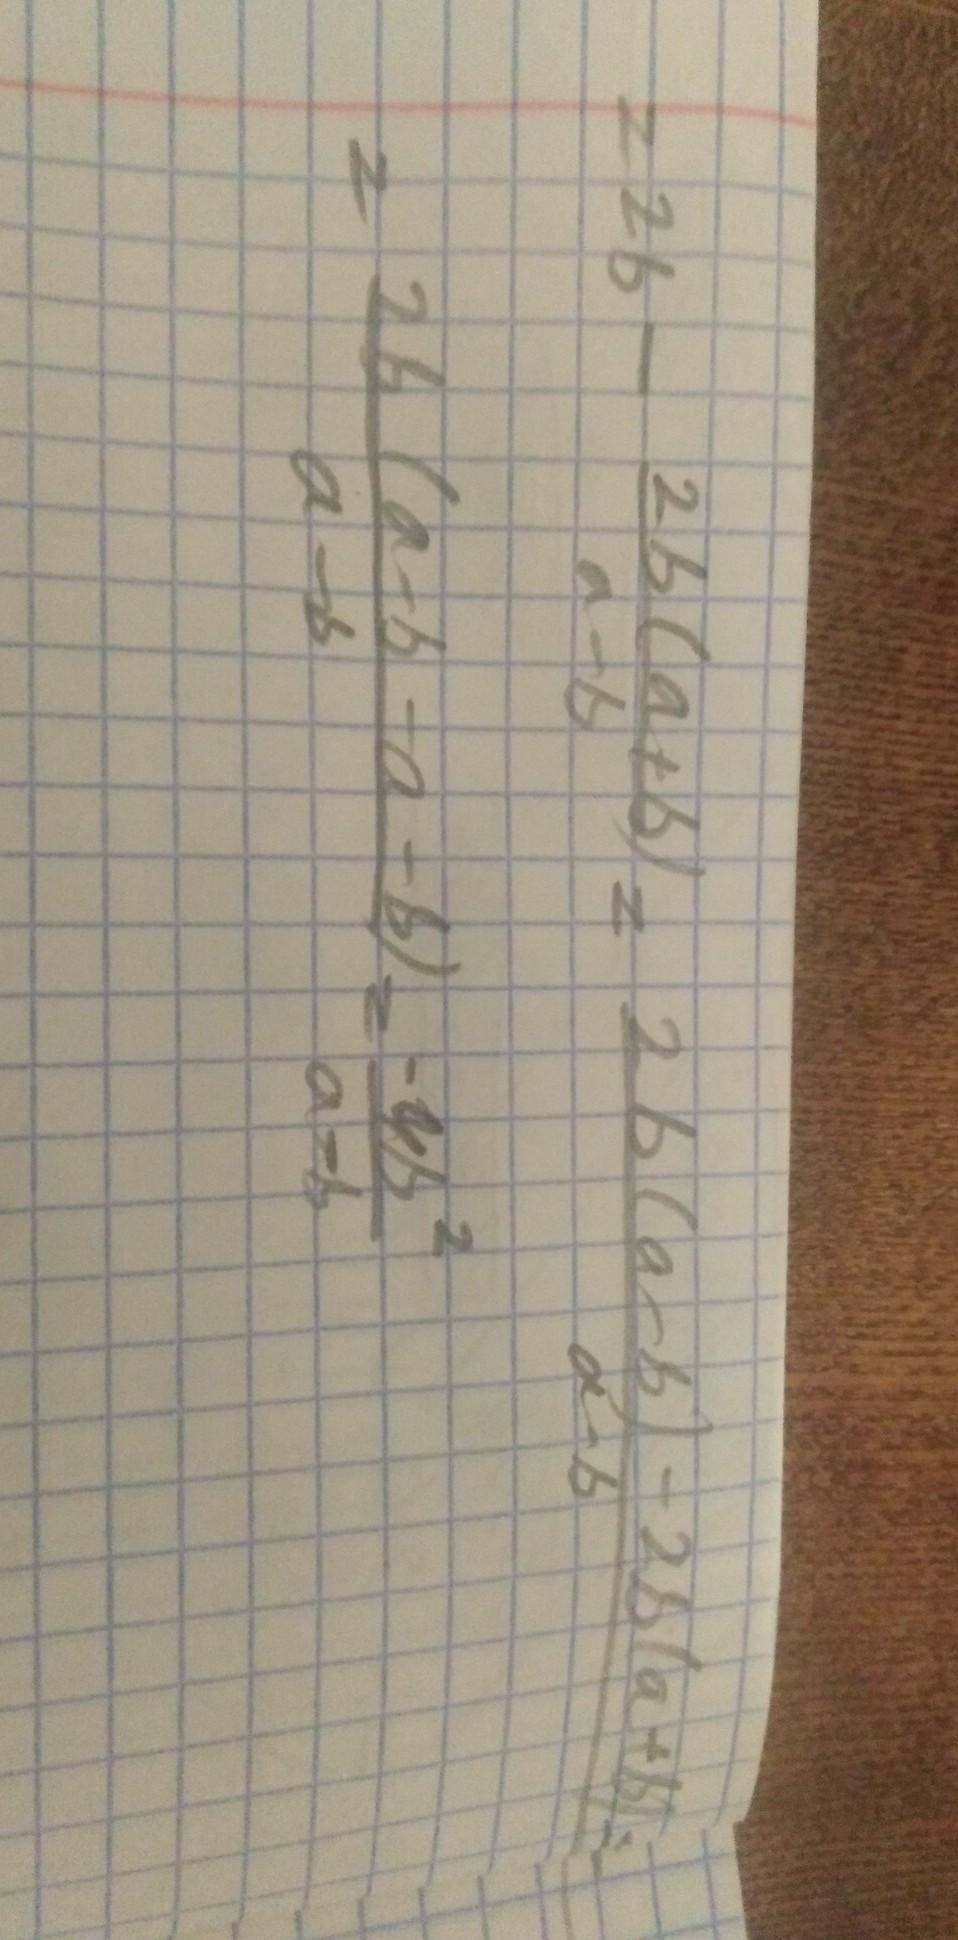 = 2b - \frac{2b(a+b)}{a-b} = \frac{2b(a-b)-2b(a+b)}{a-b} =
= \frac{2b(a-b-a-b)}{a-b} = \frac{-4b^2}{a-b}